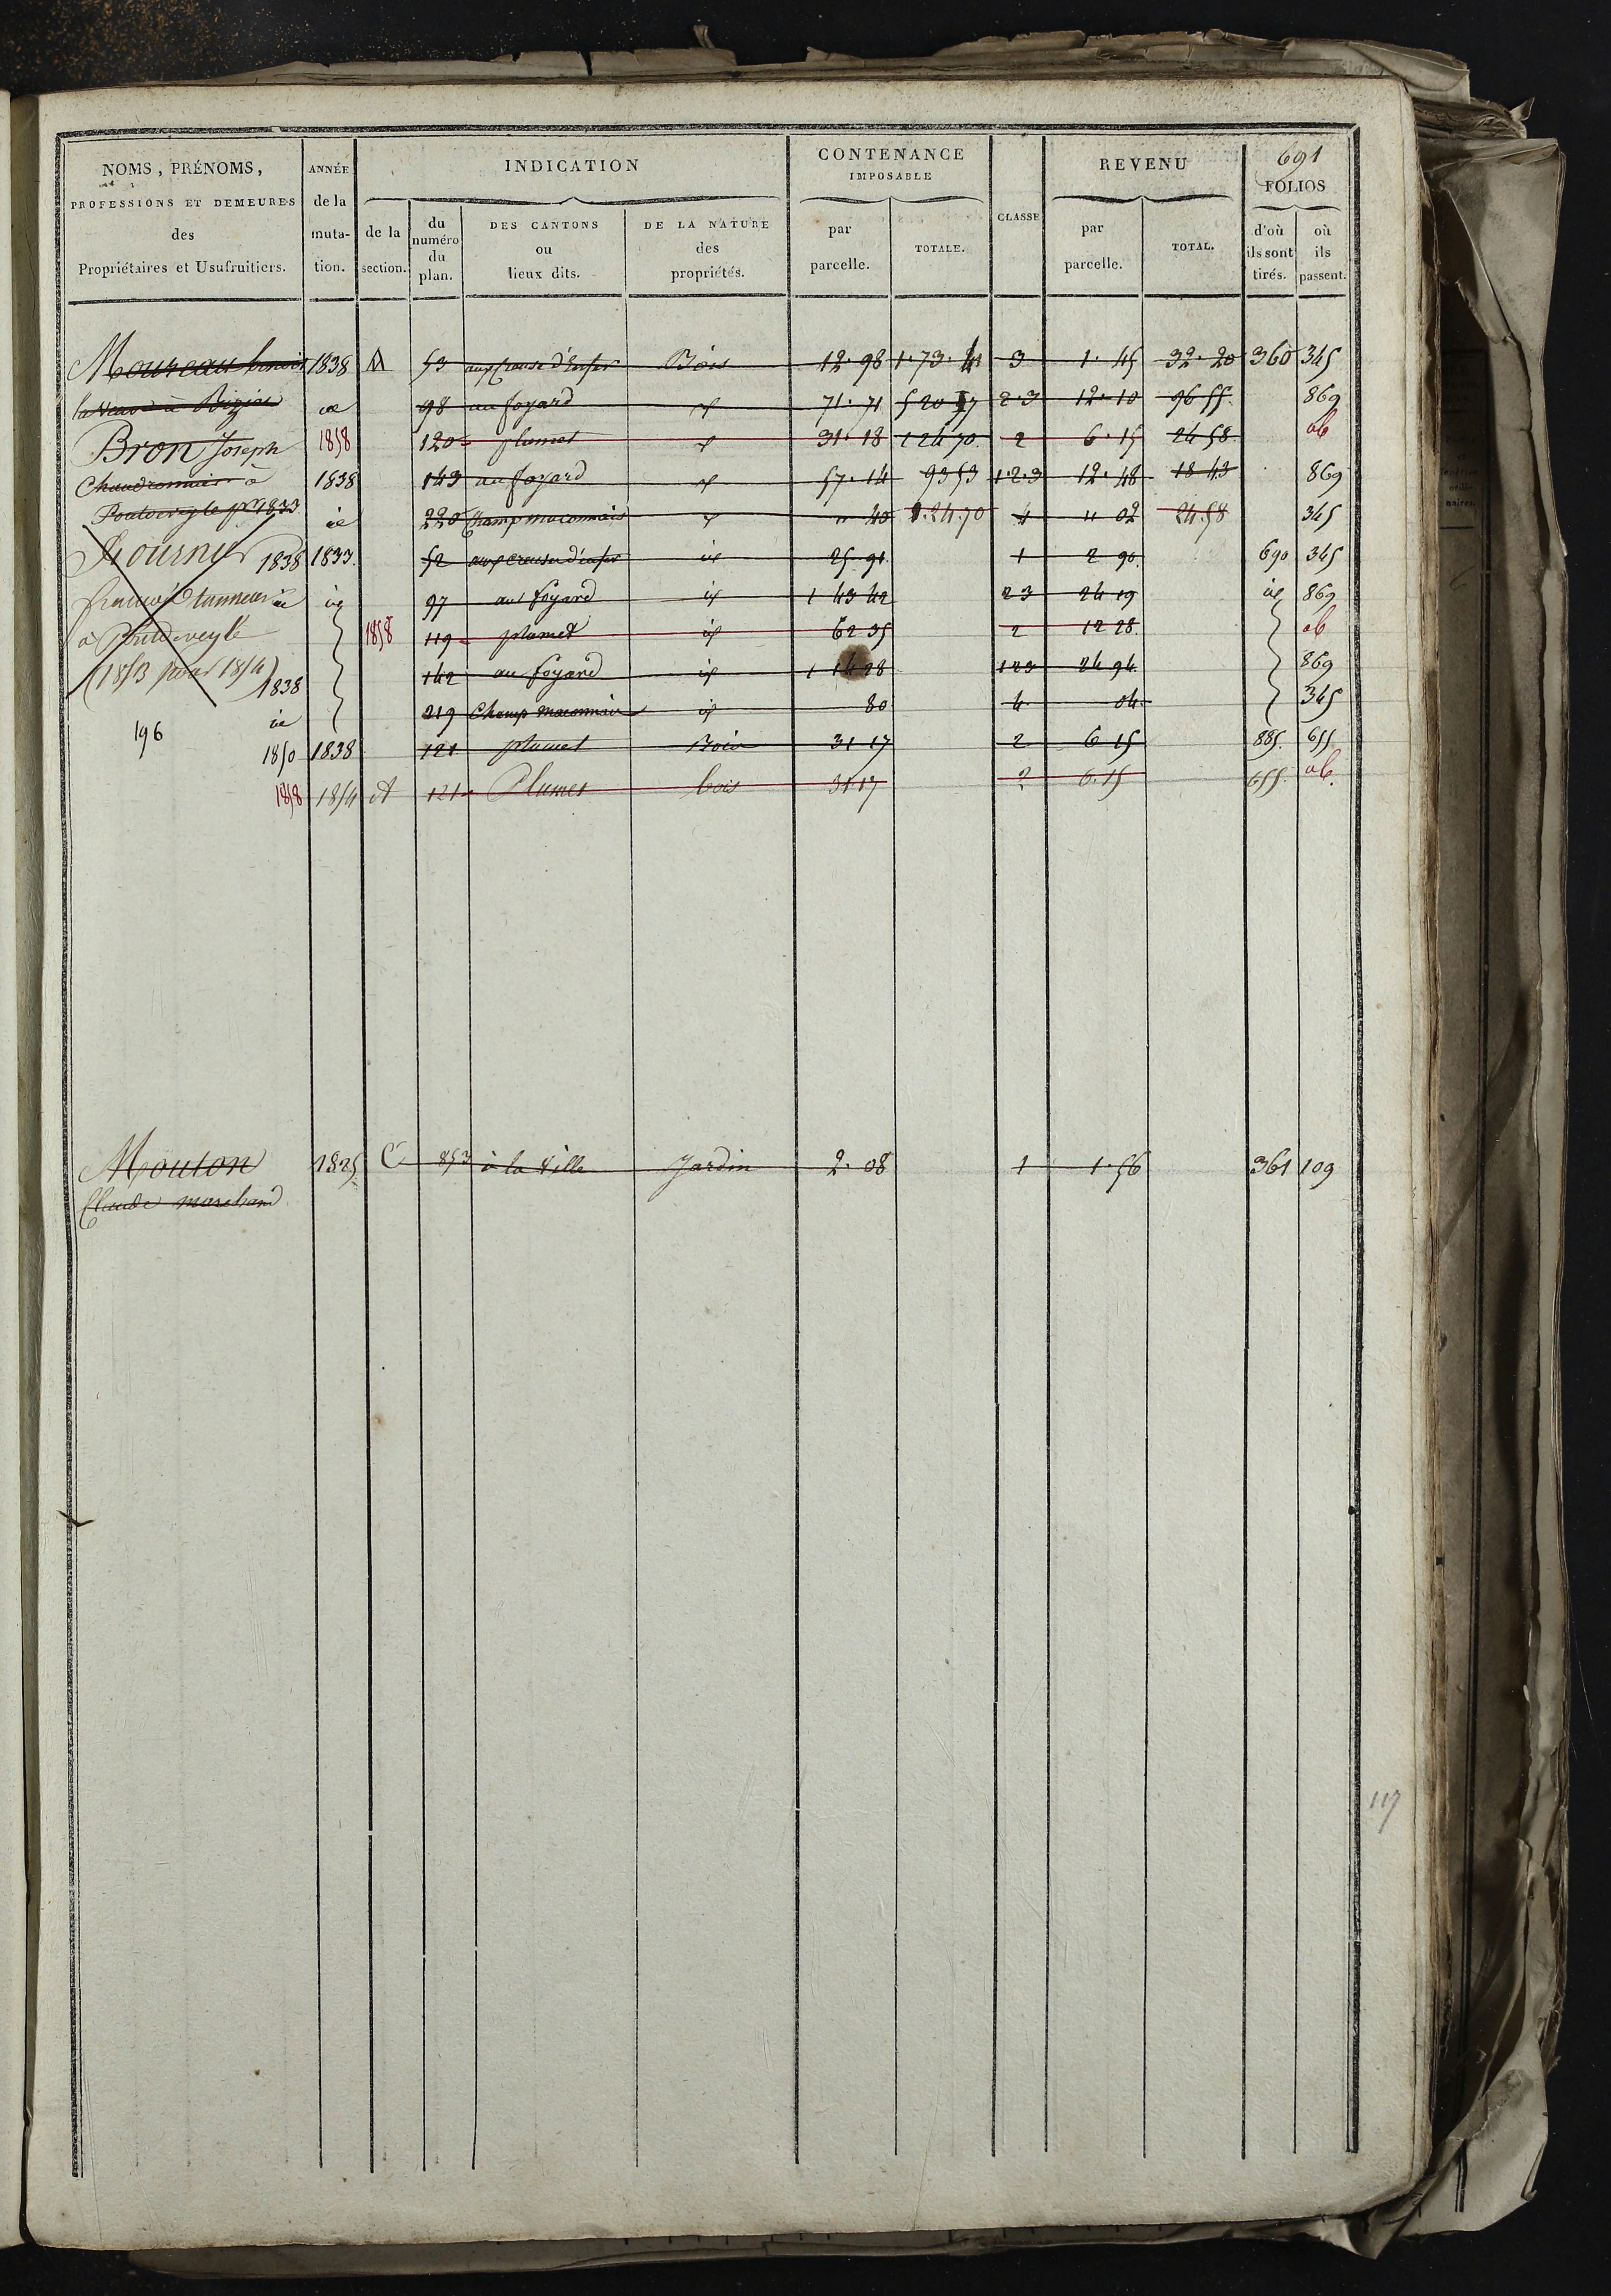 691
NOMS, PRÉNOMS, PROFESSIONS ET DEMEURES des Propriétaires et Usufruitiers.
ANNÉE de la muta- tion.
INDICATION
de la section.
du numéro du plan.
DES CANTONS ou lieux dits.
DE LA NATURE des propriétés.
CONTENANCE IMPOSABLE
par parcelle.
TOTALE.
CLASSE
REVENU
par parcelle.
TOTAL.
FOLIOS
d'où ils sont tirés.
où ils passent.
Moureau 1838 53 Bois 12.98 1.73. 3 1.45 32.20 360 345
la Veuve à Bizia 98 au foyard 71.71 520 2.3 12.10 96 55 869
Bron Joseph 1858 120 plumet 31.18 1 24 70 2 6.15 24 58 ab
Chaudronnier à 1838 143 au foyard 57.14 93 53 1.2.3 12.48 18 43 869
Pontdeveyle pr 1833 220 Champ maconnais " 40 1.24.70 4 " 02 24.58 345
1838 1833 52 aux creuse d'enfer 25.91 1 2 90 690 345
tanneur 97 au foyard 1 43 42 2 3 24 19 869
à Pontdeveyle 1858 119 plumet id 62 35 2 12 28 ab
(1853 pour 1854) 142 au foyard id 1 14 28 1 2 3 24 94 869
1838 219 Champ maconnais id 80 4 04 345
196
1850 1838 121 plumet Bois 31 17 2 6 15 885 655
1858 1854 A 121 Plumet bois 31 17 2 6.15 655 ab.
Mouton 1825 C 853 à la Ville Jardin 2.08 1 1.56 361 109
Claude marchand
117